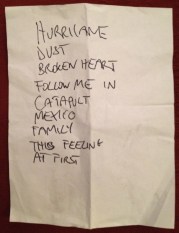 HURRICANE
DUST
BROKEN HEART
FOLLOW ME IN
CATAPULT
MEXICO
FAMILY
THIS FEELING
AT FIRST